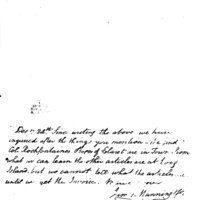 Decr. 24th Since writing the above we have
inquired after the things you mention - & find
Col. Rochfontaines of Claret are in Town. from
what we can learn the other articles are at Long
Island. but we cannot tell what the articles
until we get the Invoice.